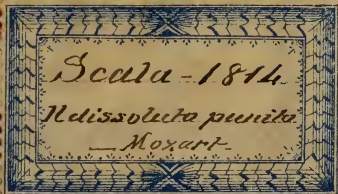 Scala - 1814
Il dissoluto punito
— Mozart —